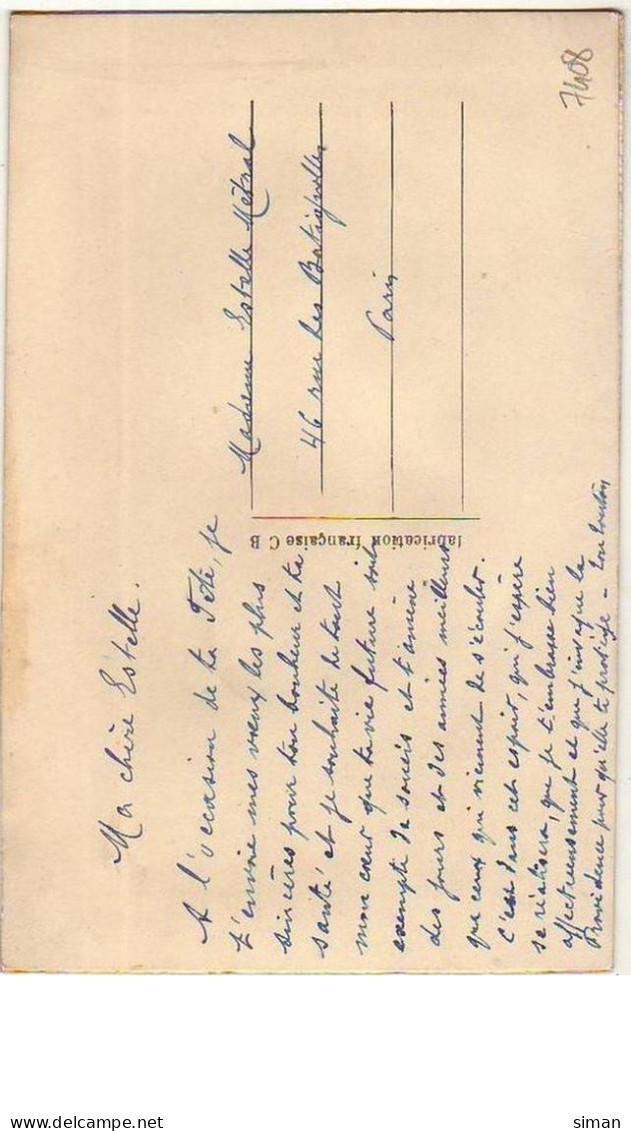 Ma chère Estelle.
A l'occasion de ta Fête, je
t'envoie mes vœux les plus
sincères pour ton bonheur et ta
santé et je souhaite de tout
mon cœur que ta vie future soit
exempte de soucis et t'amène
des jours et des années meilleurs
que ceux qui viennent de s'écouler.
C'est dans cet espoir, qui j'espère
se réalisera, que je t'embrasse bien
affectueusement et que j'invoque la
Providence pour qu'elle te protège - Ton
fabrication française C B
Madame Estelle Métral
46 rue des Batignolles
Paris
7408
siman